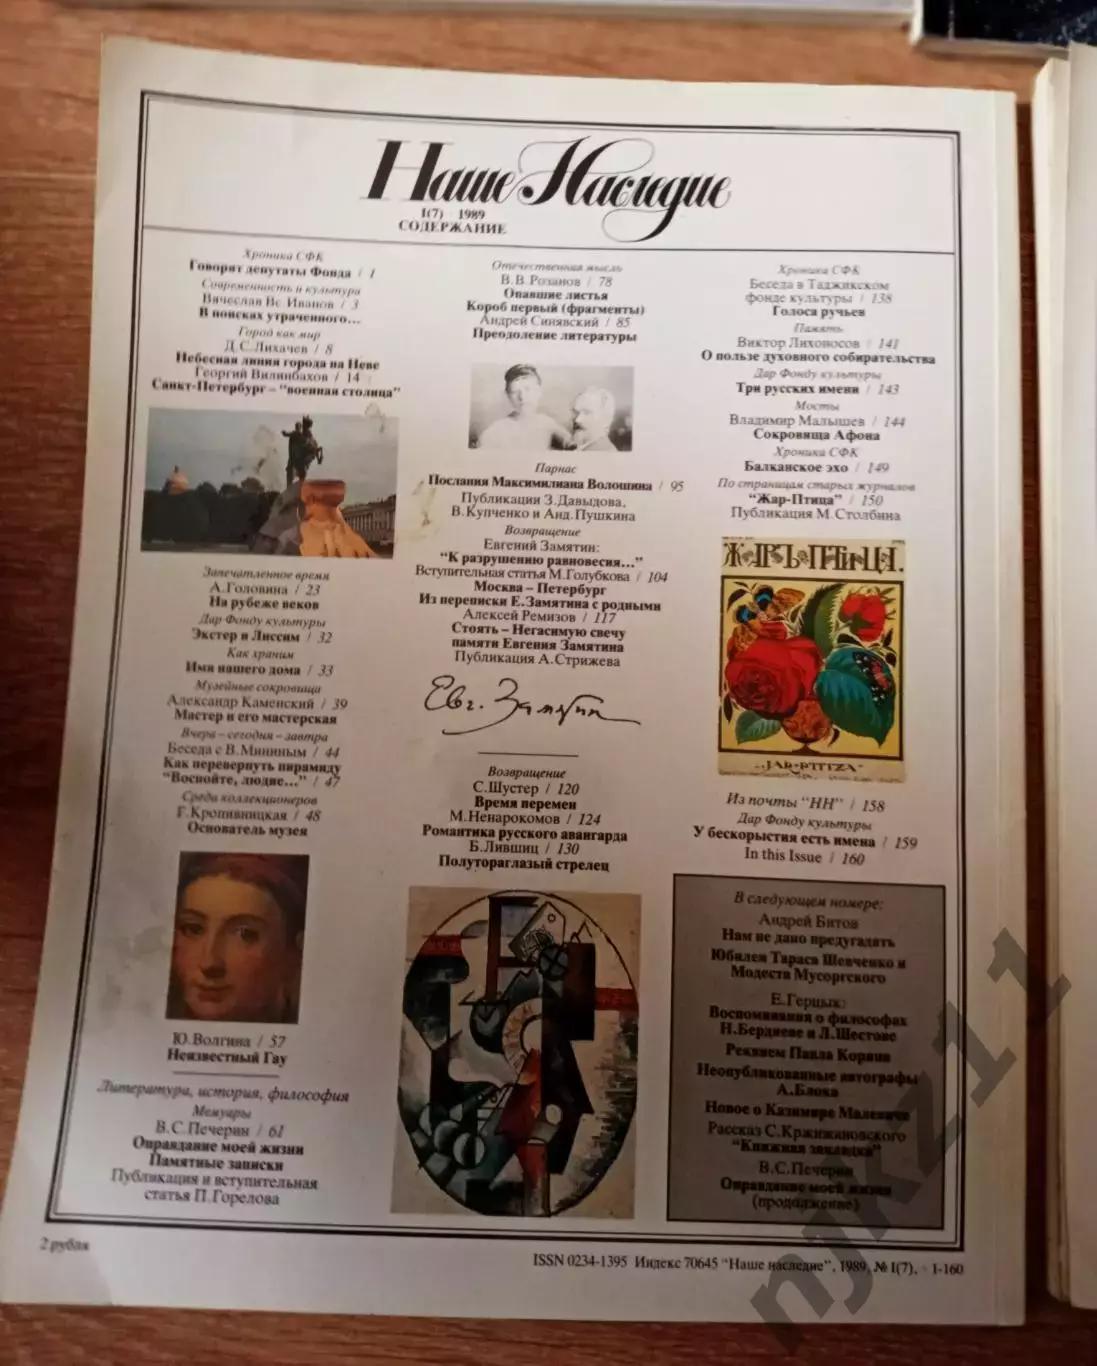 Наше Наследие
I(7) 1989
СОДЕРЖАНИЕ
Хроника СФК
Говорят депутаты Фонда / 1
Современность и культура
Вячеслав Вс. Иванов / 3
В поисках утраченного...
Город как мир
Д.С.Лихачев / 8
Небесная линия города на Неве
Георгий Вилинбахов / 14
Санкт-Петербург – "военная столица"
Запечатленное время
А.Головина / 23
На рубеже веков
Дар Фонду культуры
Экстер и Лиссим / 32
Как храним
Имя нашего дома / 33
Музейные сокровища
Александр Каменский / 39
Мастер и его мастерская
Вчера – сегодня – завтра
Беседа с В.Мининым / 44
Как перевернуть пирамиду
"Воспойте, людие..." / 47
Среди коллекционеров
Г.Кропивницкая / 48
Основатель музея
Ю.Волгина / 57
Неизвестный Гау
Литература, история, философия
Мемуары
В.С.Печерин / 61
Оправдание моей жизни
Памятные записки
Публикация и вступительная
статья П.Горелова
Отечественная мысль
В.В.Розанов / 78
Опавшие листья
Короб первый (фрагменты)
Андрей Синявский / 85
Преодоление литературы
Парнас
Послания Максимилиана Волошина / 95
Публикации З.Давыдова,
В.Купченко и Анд.Пушкина
Возвращение
Евгений Замятин:
"К разрушению равновесия..."
Вступительная статья М.Голубкова / 104
Москва – Петербург
Из переписки Е.Замятина с родными
Алексей Ремизов / 117
Стоять – Негасимую свечу
памяти Евгения Замятина
Публикация А.Стрижева
Евг. Замятин
Возвращение
С.Шустер / 120
Время перемен
М.Ненарокомов / 124
Романтика русского авангарда
Б.Лившиц / 130
Полутораглазый стрелец
Хроника СФК
Беседа в Таджикском
фонде культуры / 138
Голоса ручьев
Память
Виктор Лихоносов / 141
О пользе духовного собирательства
Дар Фонду культуры
Три русских имени / 143
Мосты
Владимир Малышев / 144
Сокровища Афона
Хроника СФК
Балканское эхо / 149
По страницам старых журналов
"Жар-Птица" / 150
Публикация М.Столбина
ЖАРЪ-ПТИЦА.
"JAR-PTITZA"
Из почты "НН" / 158
Дар Фонду культуры
У бескорыстия есть имена / 159
In this Issue / 160
В следующем номере:
Андрей Битов
Нам не дано предугадать
Юбилеи Тараса Шевченко и
Модеста Мусоргского
Е.Герцык:
Воспоминания о философах
Н.Бердяеве и Л.Шестове
Реквием Павла Корина
Неопубликованные автографы
А.Блока
Новое о Казимире Малевиче
Рассказ С.Кржижановского
"Книжная закладка"
В.С.Печерин
Оправдание моей жизни
(продолжение)
2 рубля
ISSN 0234-1395 Индекс 70645 "Наше наследие", 1989, № I(7), 1-160
njkz11